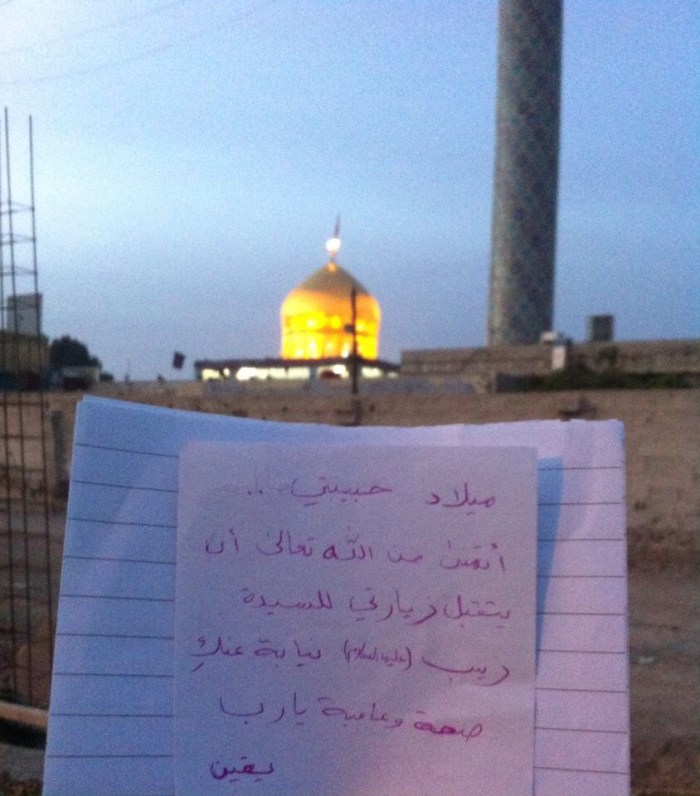 ميلاد حبيبتي ..
أتمنى من الله تعالى أن
يتقبل زيارتي للسيدة
زينب (عليها السلام) نيابة عنكِ
صحة وعافية يارب
يقين